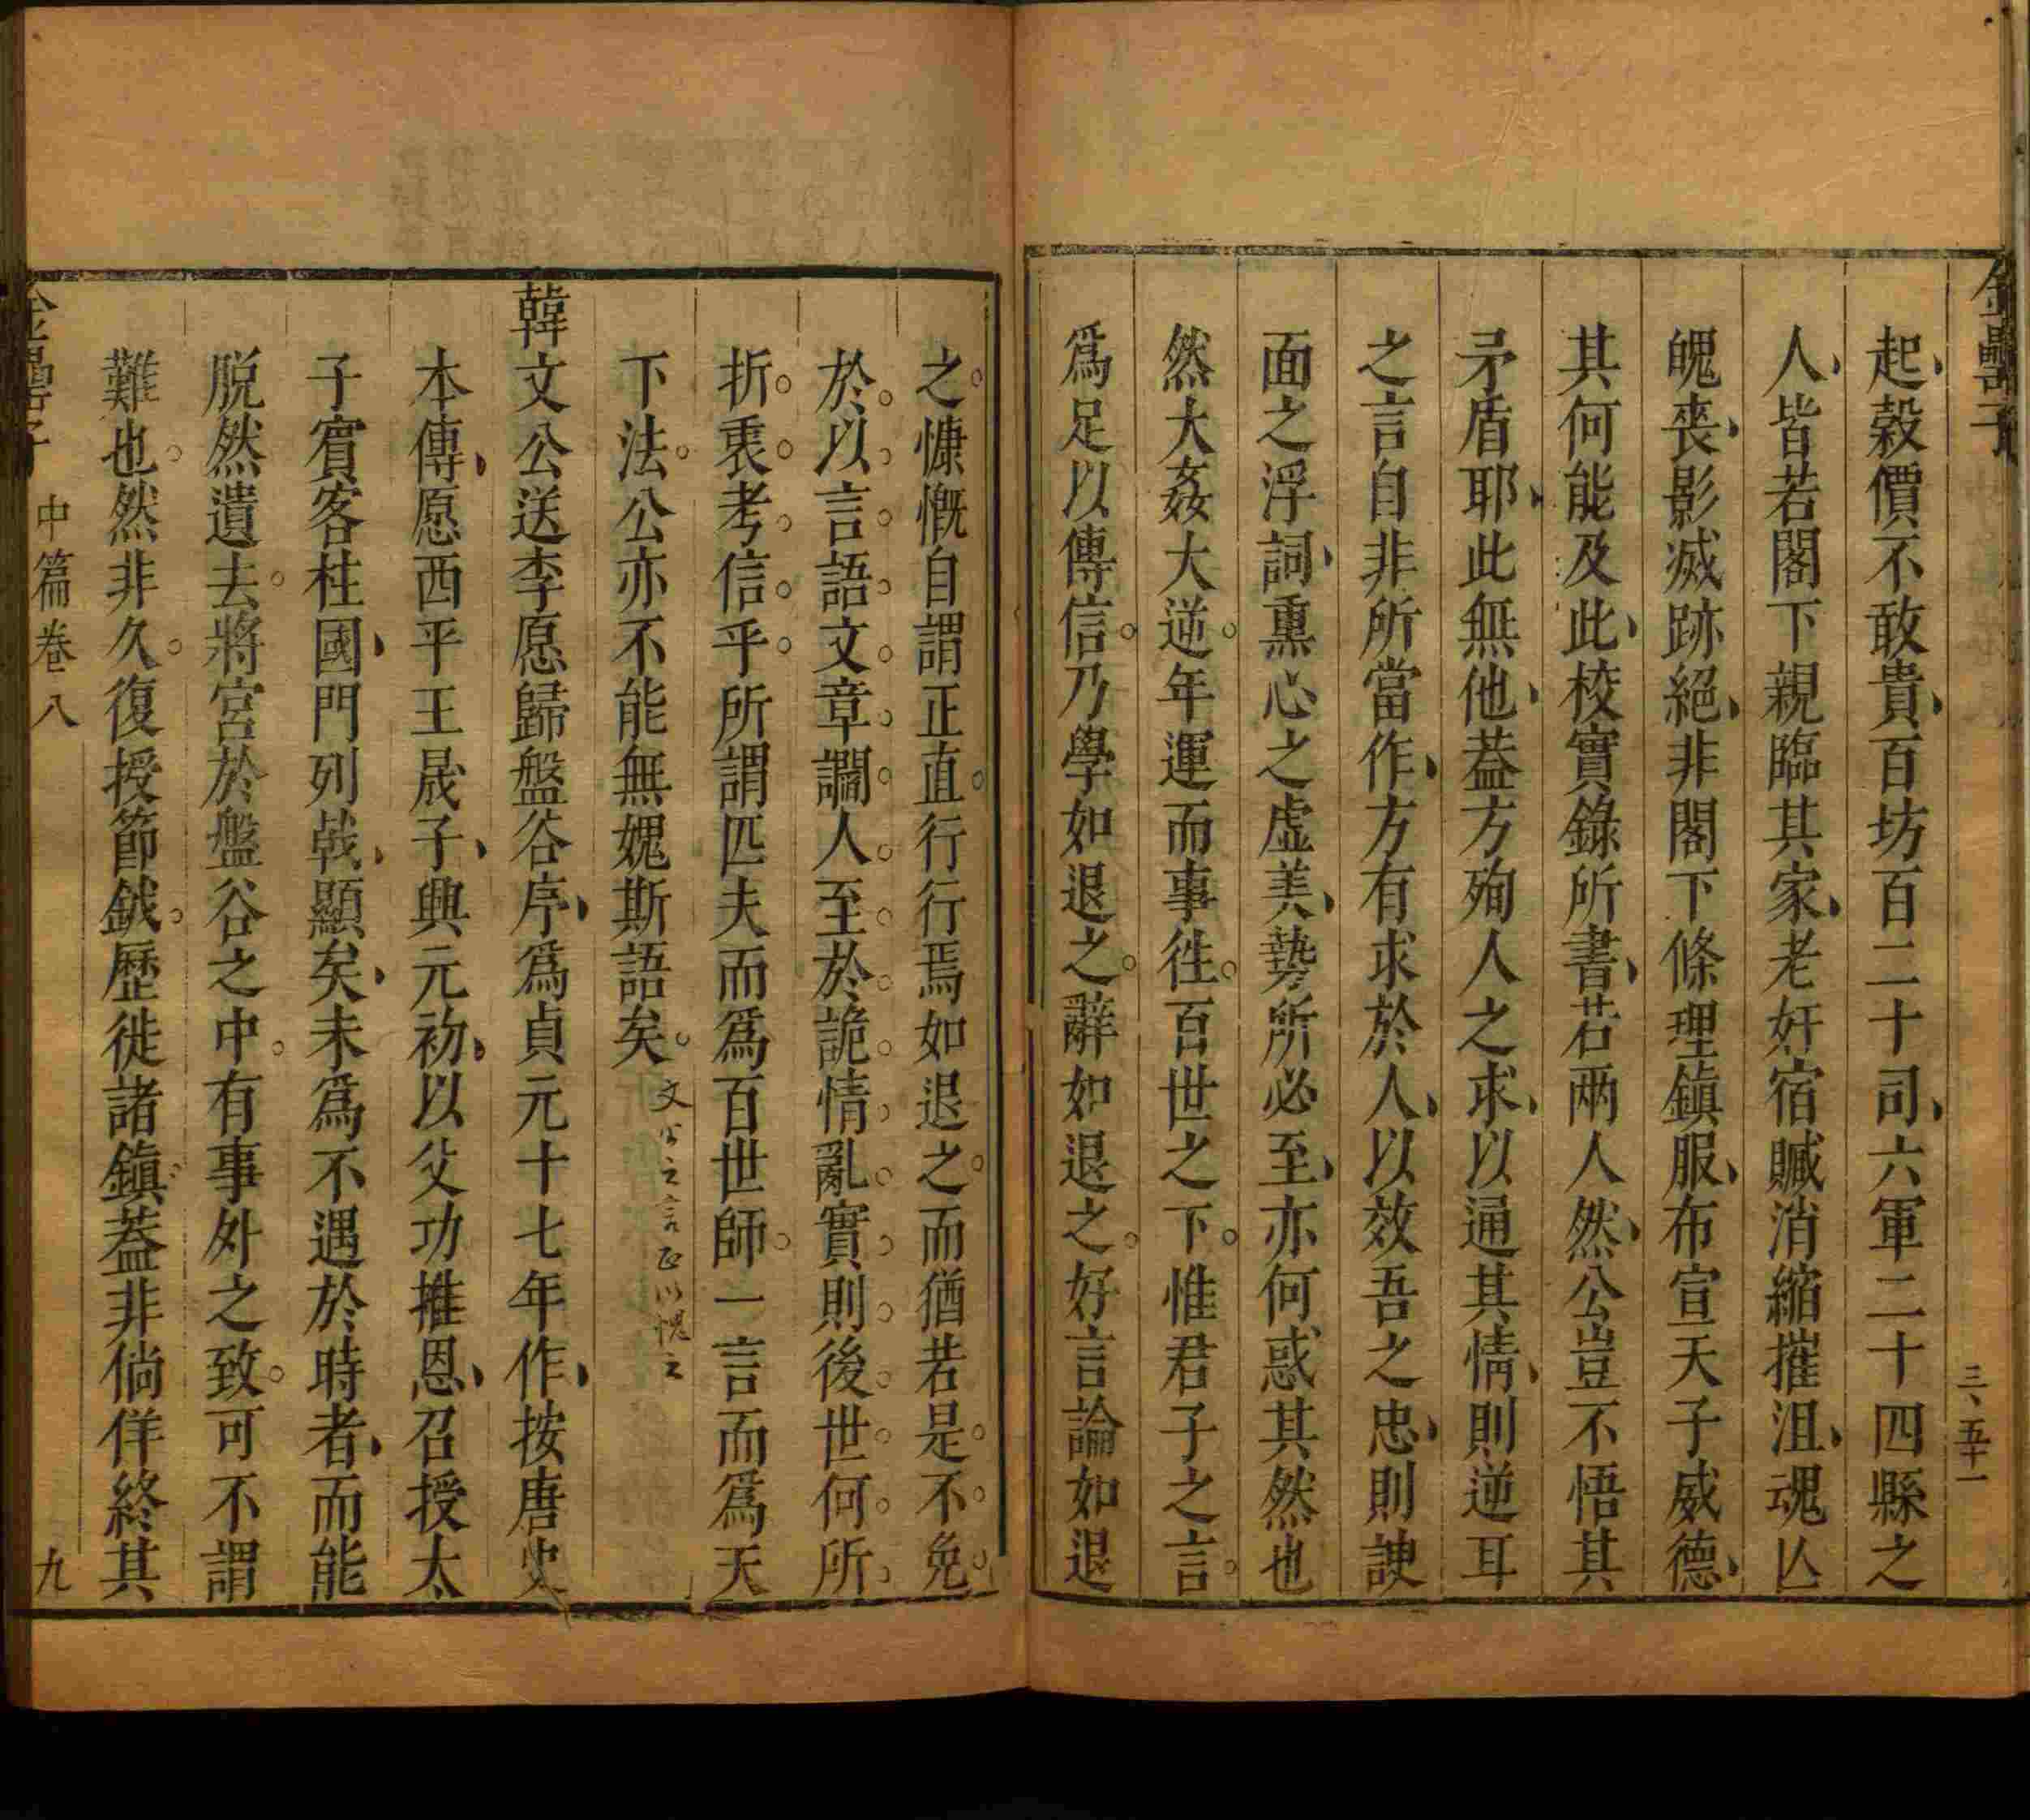 金罍子
三、五十一
起穀價不敢貴百坊百二十司六軍二十四縣之
人皆若閣下親臨其家老奸宿贓消縮摧沮魂亾
魄喪影滅跡絕非閣下條理鎮服布宣天子威德
其何能及此校實錄所書若兩人然公豈不悟其
矛盾耶此無他葢方殉人之求以通其情則逆耳
之言自非所當作方有求於人以效吾之忠則諛
面之浮詞熏心之虛美勢所必至亦何惑其然也
然大姦大逆年運而事徃百世之下惟君子之言
爲足以傳信乃學如退之辭如退之好言論如退
之慷慨自謂正直行行焉如退之而猶若是不免
於以言語文章讕人至於詭情亂實則後世何所
折衷考信乎所謂匹夫而爲百世師一言而爲天
下法公亦不能無媿斯語矣
文公之言正以愧之
韓文公送李愿歸盤谷序爲貞元十七年作按唐史
本傳愿西平王晟子興元初以父功推恩召授太
子賓客柱國門列戟顯矣未爲不遇於時者而能
脱然遺去將宮於盤谷之中有事外之致可不謂
難也然非久復授節鉞歷徙諸鎮葢非倘佯終其
金罍子
中篇卷八
九